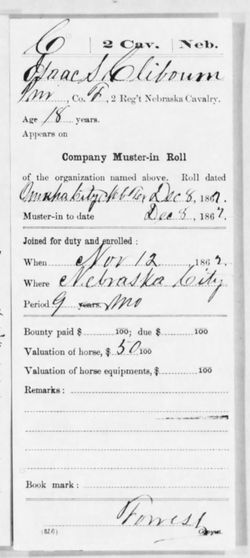 C | 2 Cav. | Neb.
Isaac S. Cliborn
Pvt, Co. F, 2 Reg't Nebraska Cavalry.
Age 18 years.
Appears on
Company Muster-in Roll
of the organization named above. Roll dated
Omaha City, Dec 8, 1862.
Muster-in to date Dec 8, 1862
Joined for duty and enrolled:
When Nov 12 1862.
Where Nebraska City
Period 9 years. mo
Bounty paid $ 100; due $ 100
Valuation of horse, $ 50 100
Valuation of horse equipments, $ 100
Remarks:
Book mark:
Forrest
Copyist.